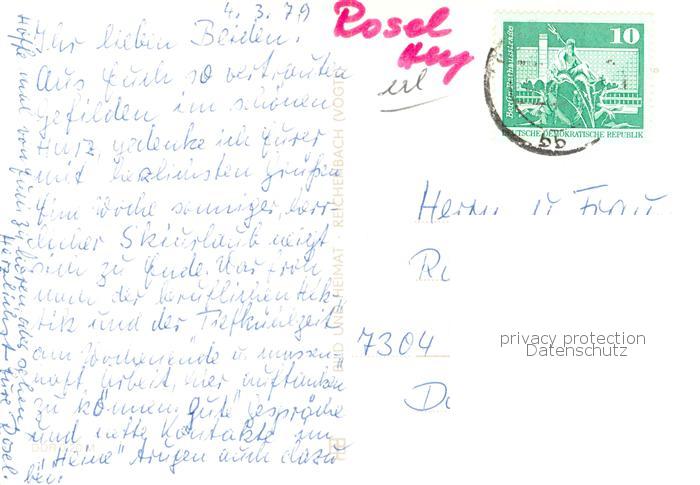 4. 3. 79
Ihr lieben Beiden!
Aus Euch so vertrauten
Gefilden, im schönen
Harz, gedenke ich Eurer
mit herzlichsten Grüßen
Eine Woche sonniger, herr-
licher Skiurlaub neigt
sich zu Ende. War froh
nach der beruflichen Hek-
tik und der Tiefkühlzeit
am Wochenende u. massen-
haft Arbeit, hier auftanken
zu können. Gute Gespräche
und nette Kontakte im
"Heine" trugen auch dazu
bei.
Hoffe mal von Euch zu hören, oder sehen
Herzlichst Eure Rosel.
Rosel
erl
10
Berlin, Rathausstraße
DEUTSCHE DEMOKRATISCHE REPUBLIK
BILD UND HEIMAT · REICHENBACH (VOGTL
Herrn u Frau
7304
privacy protection
Datenschutz